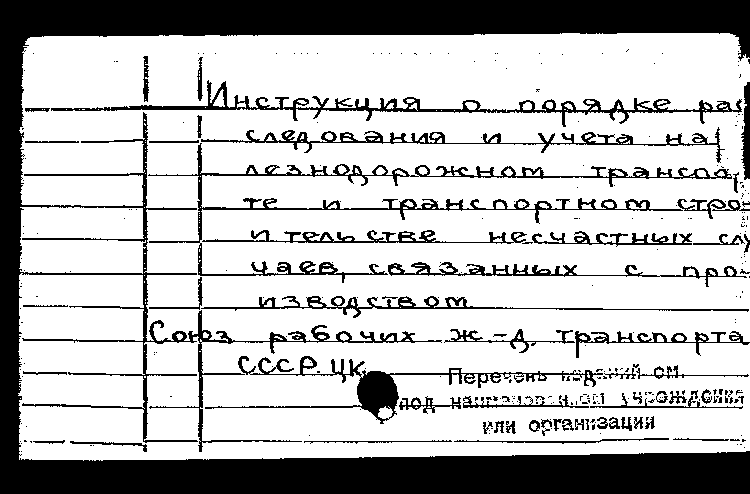 Инструкция о порядке рас
следования и учета на
лезнодорожном транспо
те и транспортном стро
ительстве несчастных слу
чаев, связанных с про-
изводством
Союз рабочих ж.-д. транспорта
СССР. ЦК
Перечень изданий см.
под наименованием учреждения
или организации